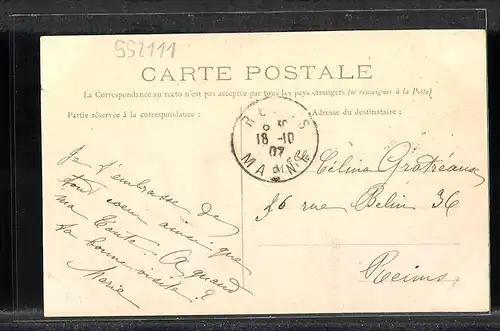 SS2111
CARTE POSTALE
La Correspondance au recto n'est pas acceptée par tous les pays étrangers (se renseigner à la Poste)
Partie réservée à la correspondance :
Adresse du destinataire :
18-10
07
MARNE
Je t'embrasse de
tout cœur ainsi que
ma Tante. A quand
ta bonne visite ?
Marie
Mlle Célina Grotréaux
36 rue Belin 36
Reims